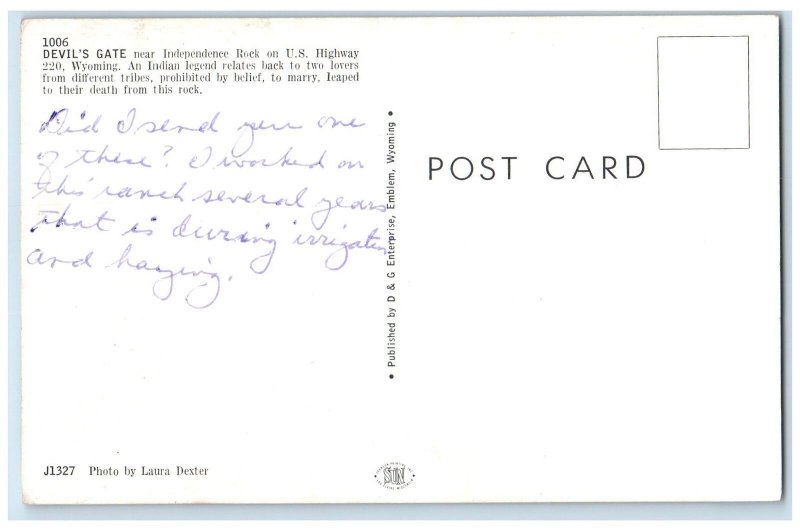 1006
DEVIL'S GATE near Independence Rock on U.S. Highway
220, Wyoming. An Indian legend relates back to two lovers
from different tribes, prohibited by belief, to marry, leaped
to their death from this rock.
Did I send you one
of these? I worked on
this ranch several years
that is during irrigating
and haying.
• Published by D & G Enterprise, Emblem, Wyoming •
POST CARD
J1327 Photo by Laura Dexter
SUN